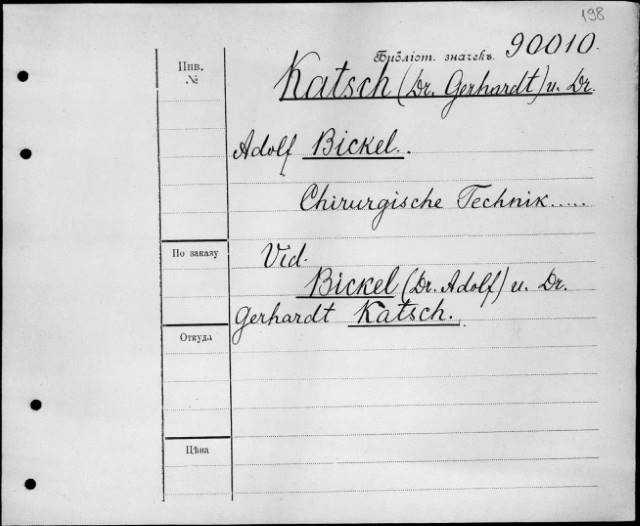 198
Библіот. значекъ. 90010.
Инв.
№
Katsch (Dr. Gerhardt) u. Dr.
Adolf Bickel..
Chirurgische Technik.....
По заказу
Vid.
Bickel (Dr. Adolf) u. Dr.
Gerhardt Katsch.
Откуда
Цѣна